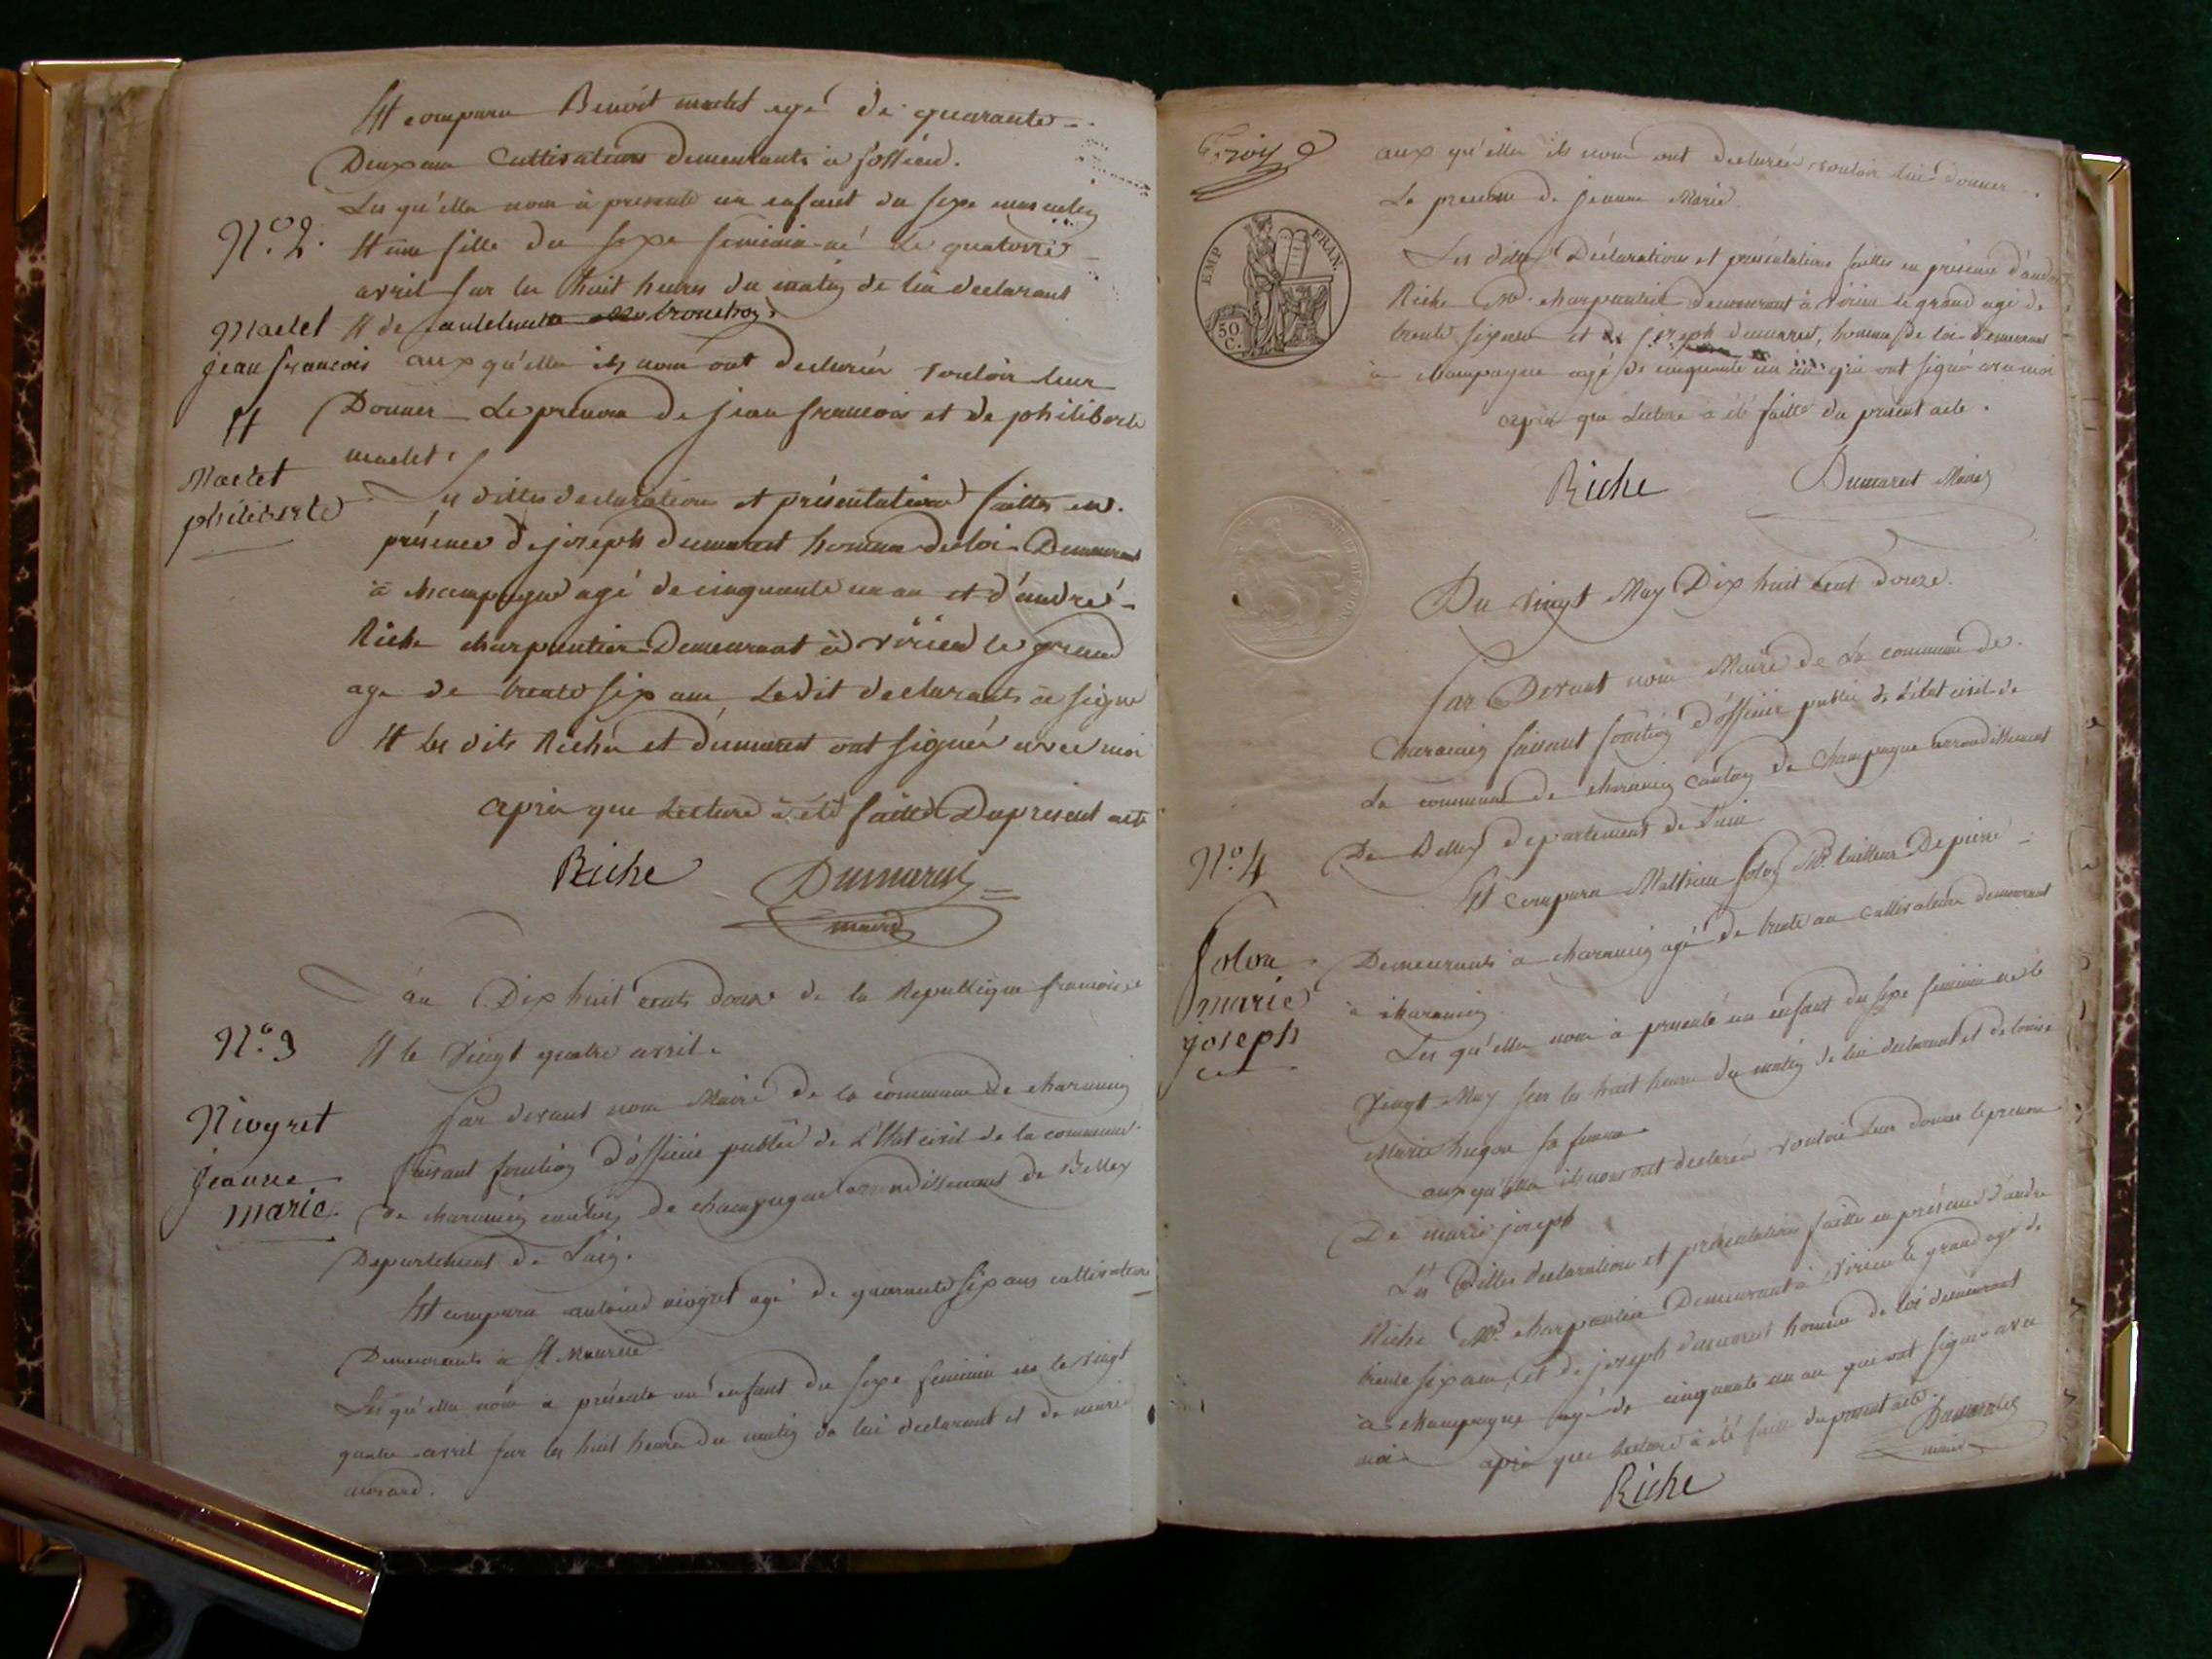 Et comparu Benoit maclet agé de quarante
Deux ans Cultivateurs demeurants à
Les qu'elles nous à presenté un enfant du sexe masculin
N.o 2.
Et une fille du sexe feminin né le quatorze
avril sur les huit heures du matin de lui declarant
Et de
Maclet
jean francois
Et
Maclet
philiberte
aux qu'elles ils nous ont declarés vouloir leur
Donner le prenom de jean francois et de philiberte
maclet.
Les dittes declaration et présentation faittes en
présence de joseph dumarest homme de loi Demeurant
à champagne agé de cinquante un an et d'andré
Riche charpentier Demeurant à virieu le grand
age de trente six ans, Ledit declarants a signe
Et les dits Riche et dumarest ont signés avec moi
après que Lecture à été faitte Du present acte
Riche Dumarest
maire
L'an Dix huit cents douze de la Republique francoise
N.o 3
Et le vingt quatre avril.
Niogret
jeanne
marie
Par devant nous Maire de la commune de charancin
faisant fonction d'officier publie de L'Etat civil de la commune
De charancin canton de champagne arrondissement de Belley
Departement de L'ain.
Et comparu antoine niogret agé de quarante six ans cultivateur
Demeurants à St. Maurice.
Les qu'elles nous a présenté un enfant du sexe feminin né le vingt
quatre avril sur les huit heures du matin de lui declarant et de marie
aux qu'elles ils nous ont declarés vouloir lui donner
Le prenom de jeanne Marie.
EMP FRAN.
50
C.
Les dittes Déclarations et présentations faittes en présence d'andré
Riche Md. charpentier demeurant à virieu le grand agé de
trente six ans et de joseph dumarest, homme de loi demeurant
à champagne agé de cinquante un an qui ont signé avec moi
après que Lecture a été faitte du present acte.
Riche Dumarest Maire
Du vingt May Dix huit cent douze.
Par Devant nous Maire de La commune de
Charancin faisant fonction d'officier public de L'état civil de
La commune de charancin Canton de Champagne arrondissement
De Belley departement de L'ain
N.o 4
Et comparu Mathieu Md. tailleur De pierre
marie
joseph
Demeurants à charancin agé de trente an cultivateur demeurant
à charancin.
Les qu'elles nous à presenté un enfant du sexe feminin né le
vingt May sur les huit heures du matin de lui declarant et de louise
Marie hugon sa femme.
aux qu'elles ils nous ont declarés vouloir leur donner le prenom
De marie joseph
Les Dittes declaration et présentation faitte en présence d'andre
Riche Md. charpentier Demeurant à virieu le grand agé de
trente six ans, et de joseph dumarest homme de loi demeurant
à champagne agé de cinquante un an qui ont signé avec
moi après que Lecture à été faitte du present acte.
Dumarest
maire
Riche